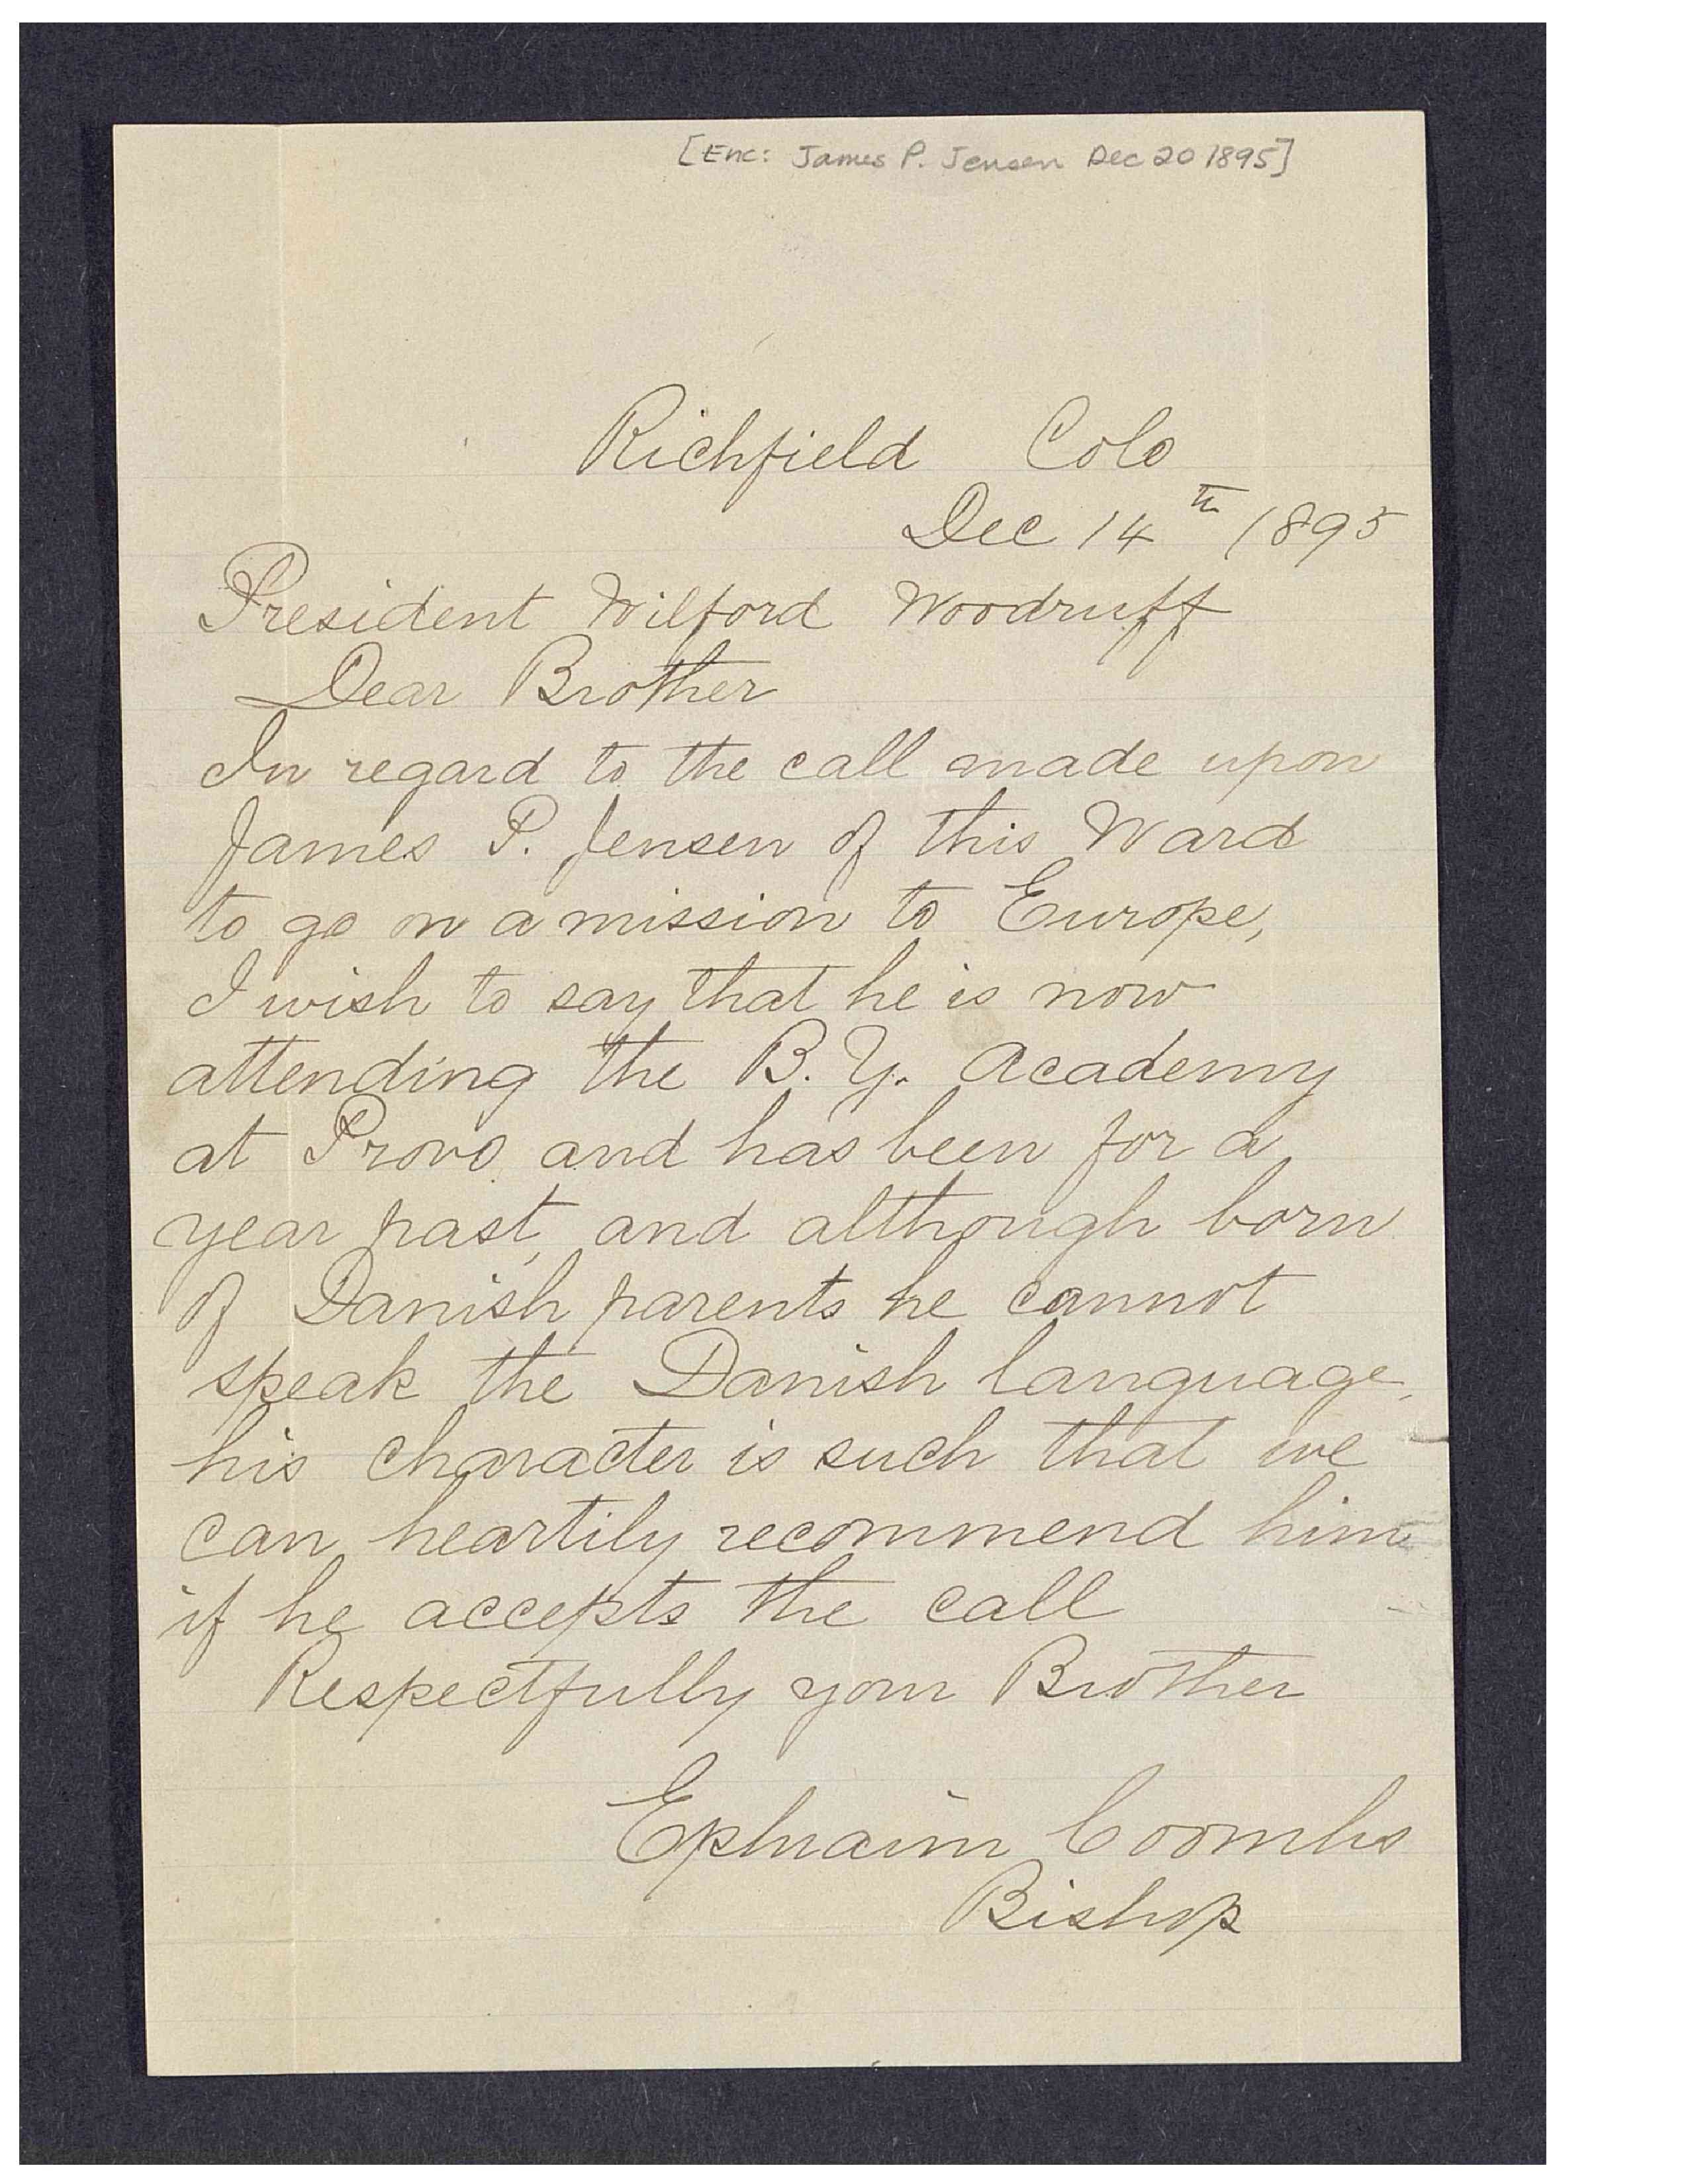 [Enc: James P. Jensen Dec 20 1895]
Richfield Colo
Dec 14th 1895
President Wilford Woodruff
Dear Brother
In regard to the call made upon
James P. Jensen of this Ward
to go on a mission to Europe,
I wish to say that he is now
attending the B. Y. Academy
at Provo, and has been for a
year past, and although born
of Danish parents he cannot
speak the Danish language,
his character is such that we
can heartily recommend him
if he accepts the call
Respectfully your Brother
Ephraim Coombs
Bishop